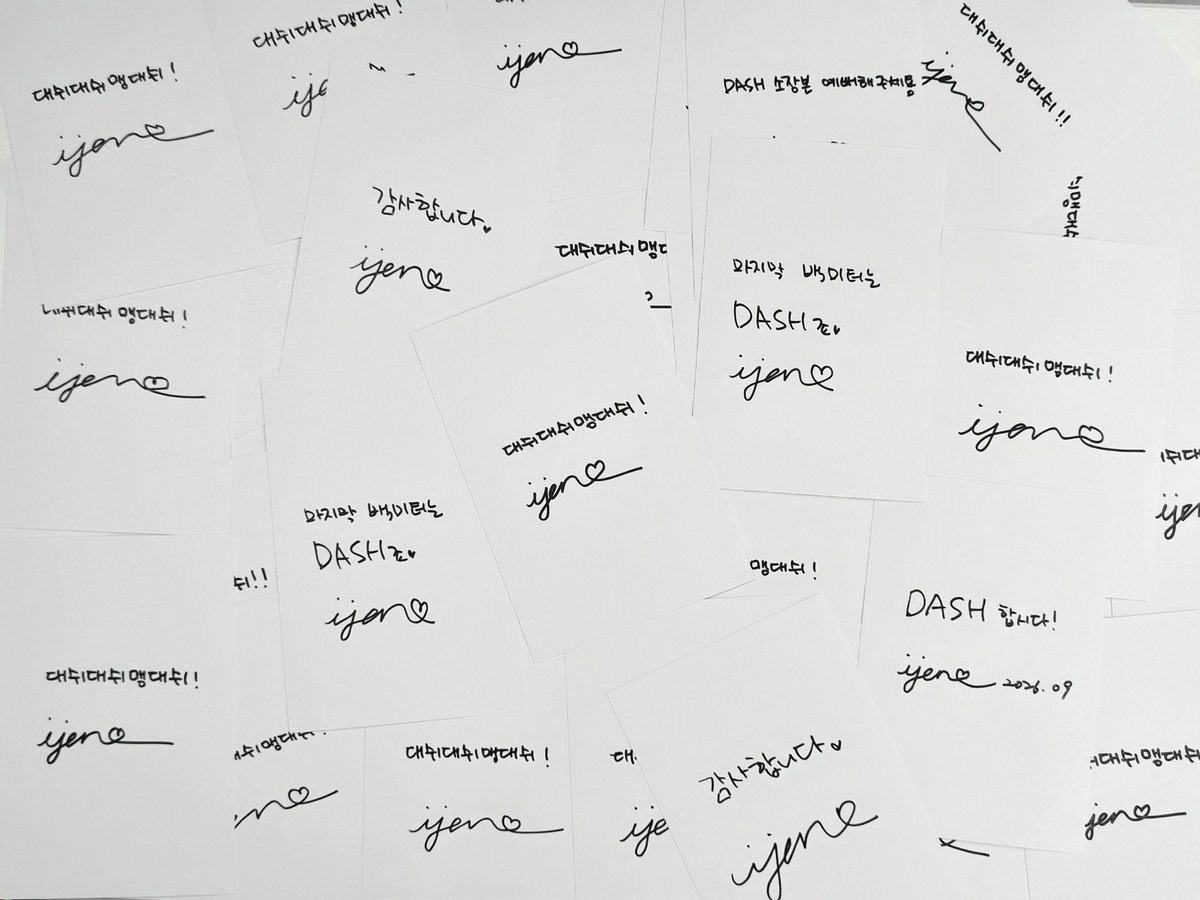 대쉬대쉬맹대쉬!
대쉬대쉬 맹대쉬!
ijen
ijen
DASH 소장본 예뻐해주세용
ijen
대쉬대쉬맹대쉬!!
감사합니다
ijen
대쉬대쉬
마지막 백미터는
DASH죠
ijen
대쉬대쉬 맹대쉬!
ijen
맹대쉬!
ijen
대쉬대쉬맹대쉬!
ijen
마지막 백미터는
DASH죠
ijen
쉬!!
맹대쉬!
DASH 합시다!
ijen 2026.09
대쉬대쉬맹대쉬!
ijen
대쉬대쉬맹대쉬!
ijen
감사합니다
ijen
맹대쉬